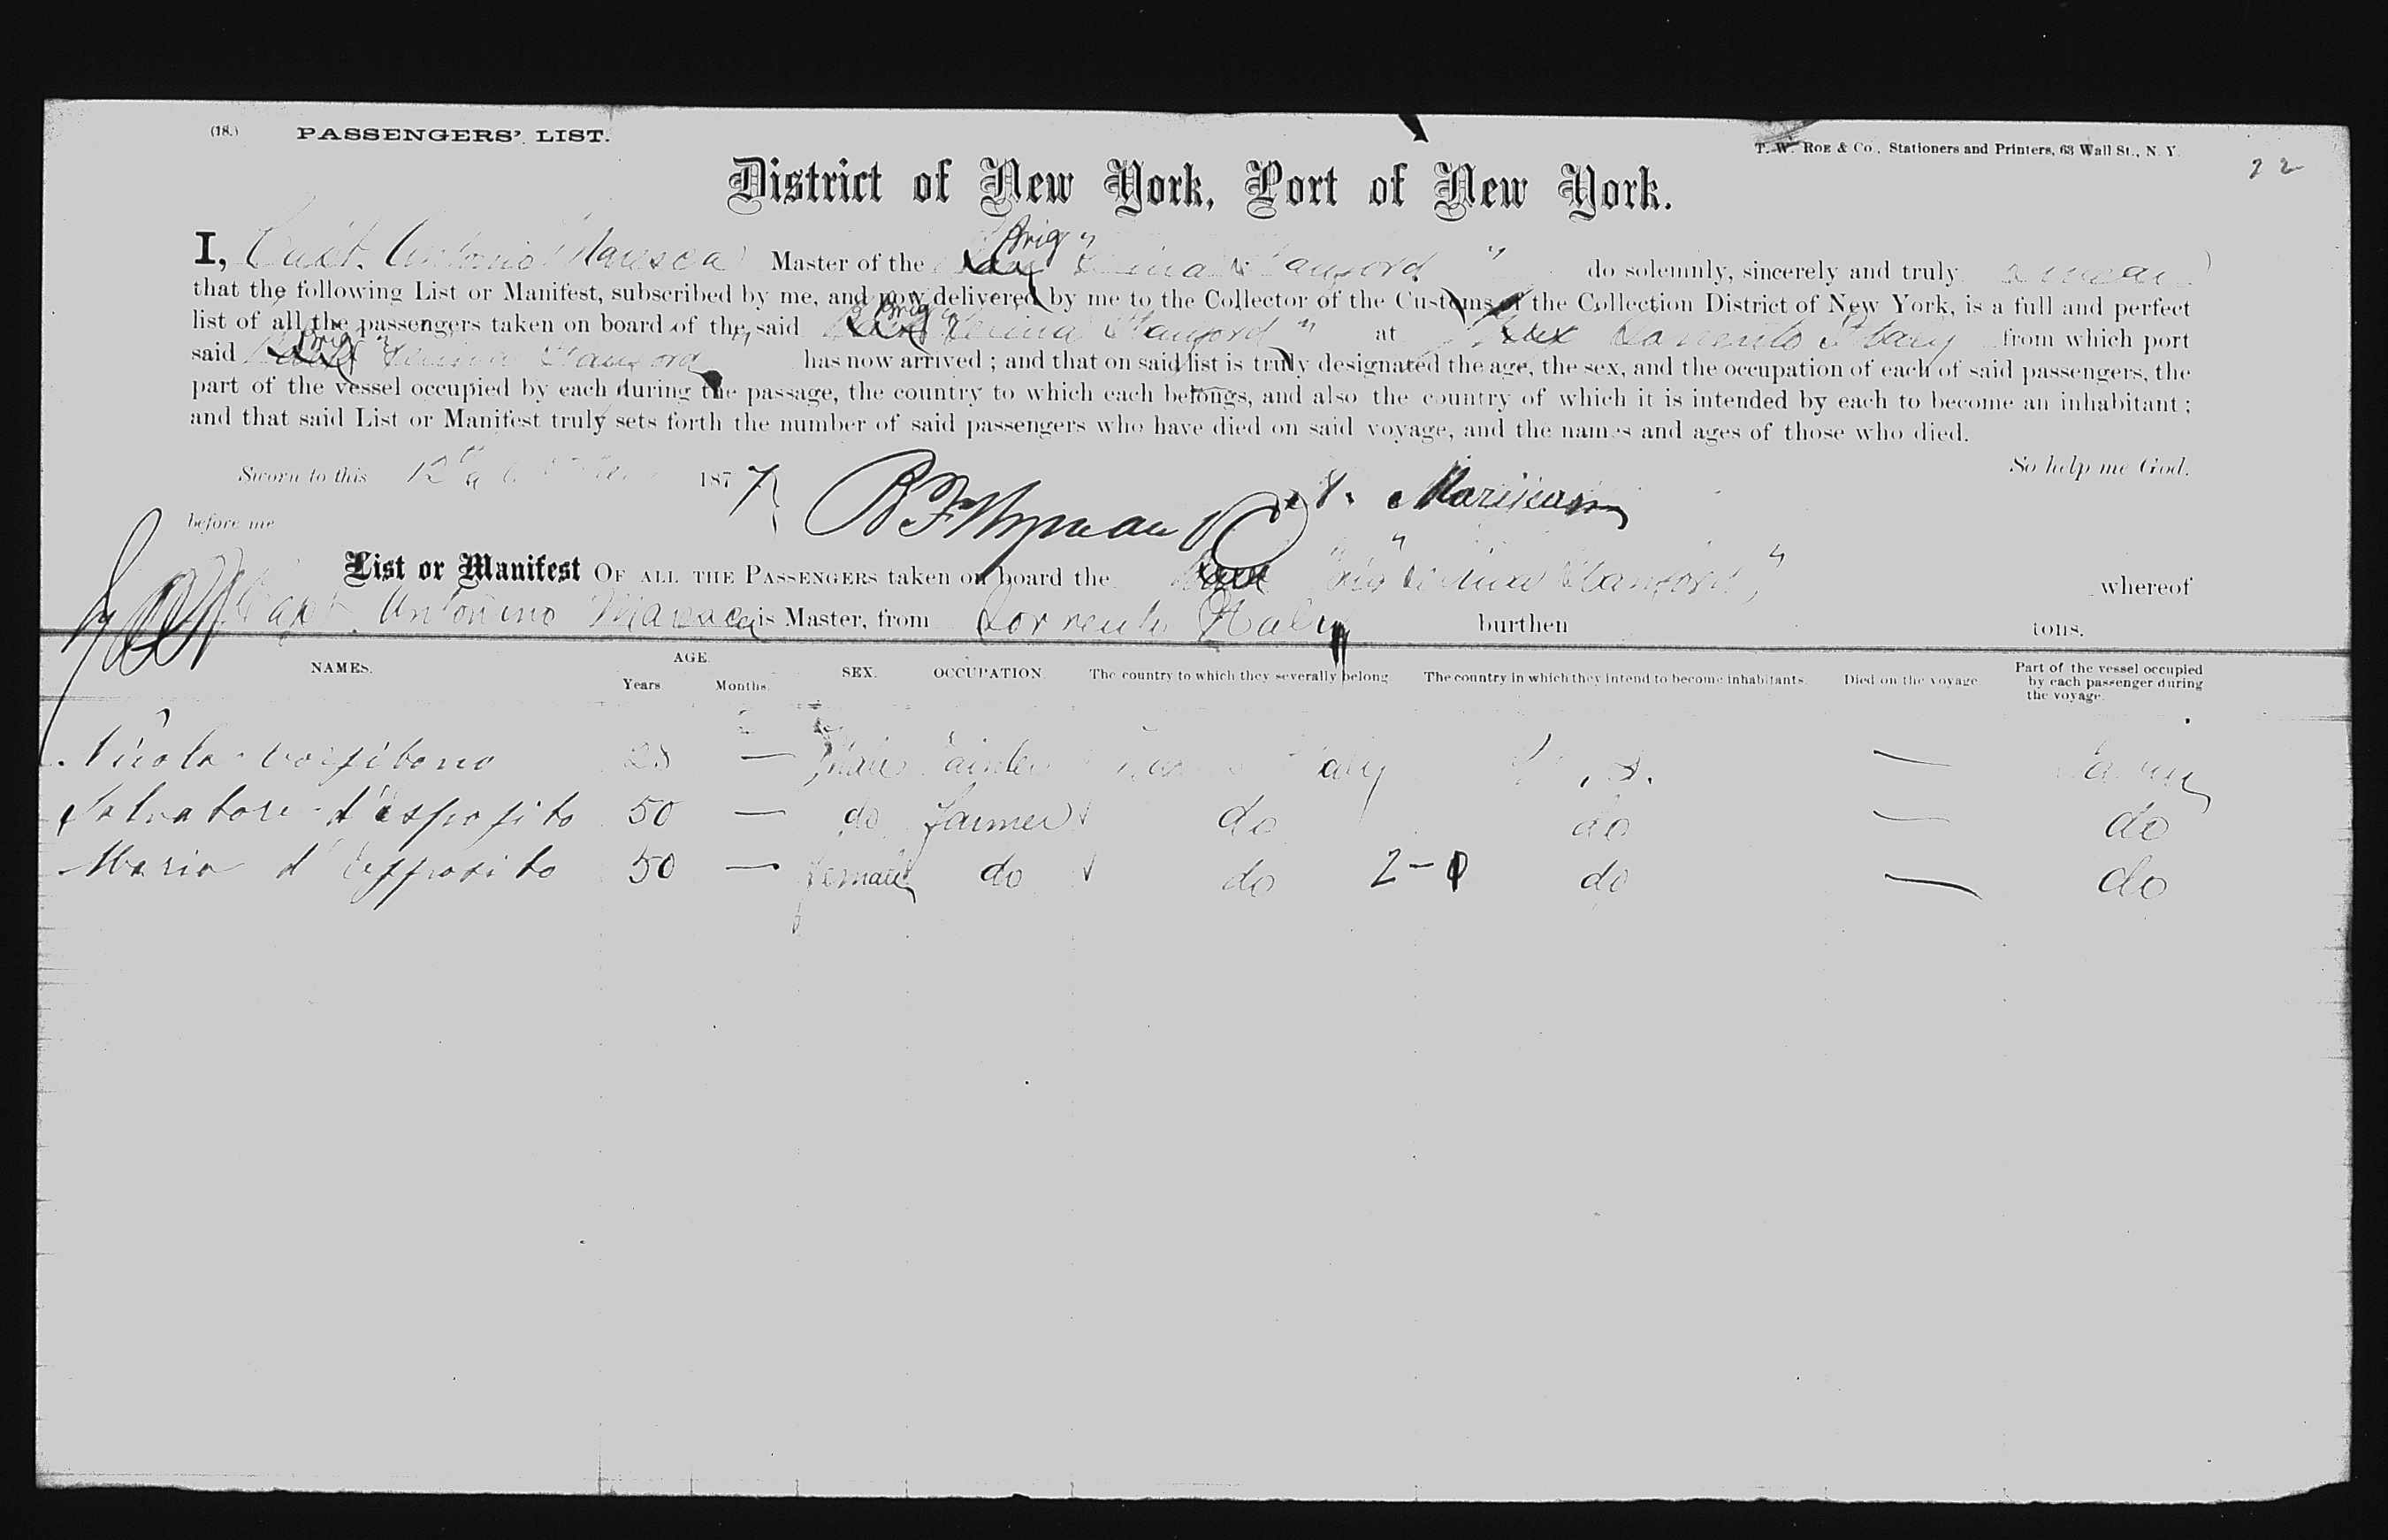 (18.) PASSENGERS' LIST.
T. W. ROE & Co., Stationers and Printers, 63 Wall St., N. Y.
22
District of New York, Port of New York.
I, Capt. Antonino Maresca Master of the Brig " " do solemnly, sincerely and truly swear
that the following List or Manifest, subscribed by me, and now delivered by me to the Collector of the Customs of the Collection District of New York, is a full and perfect
list of all the passengers taken on board of the said Brig " " at Sorrento Italy from which port
said Brig " has now arrived ; and that on said list is truly designated the age, the sex, and the occupation of each of said passengers, the
part of the vessel occupied by each during the passage, the country to which each belongs, and also the country of which it is intended by each to become an inhabitant ;
and that said List or Manifest truly sets forth the number of said passengers who have died on said voyage, and the names and ages of those who died.
So help me God.
Sworn to this 12th 1877
before me
List or Manifest OF ALL THE PASSENGERS taken on board the " " whereof
Capt. Antonino Maresca is Master, from Sorrento Italy burthen tons.
NAMES. AGE. Years. Months. SEX. OCCUPATION. The country to which they severally belong The country in which they intend to become inhabitants. Died on the voyage. Part of the vessel occupied by each passenger during the voyage.
Nicola 28 — Male Italy U. S. —
Salvatore d'esposito 50 — do farmer do do — do
Maria d'esposito 50 — female do do 2- do — do